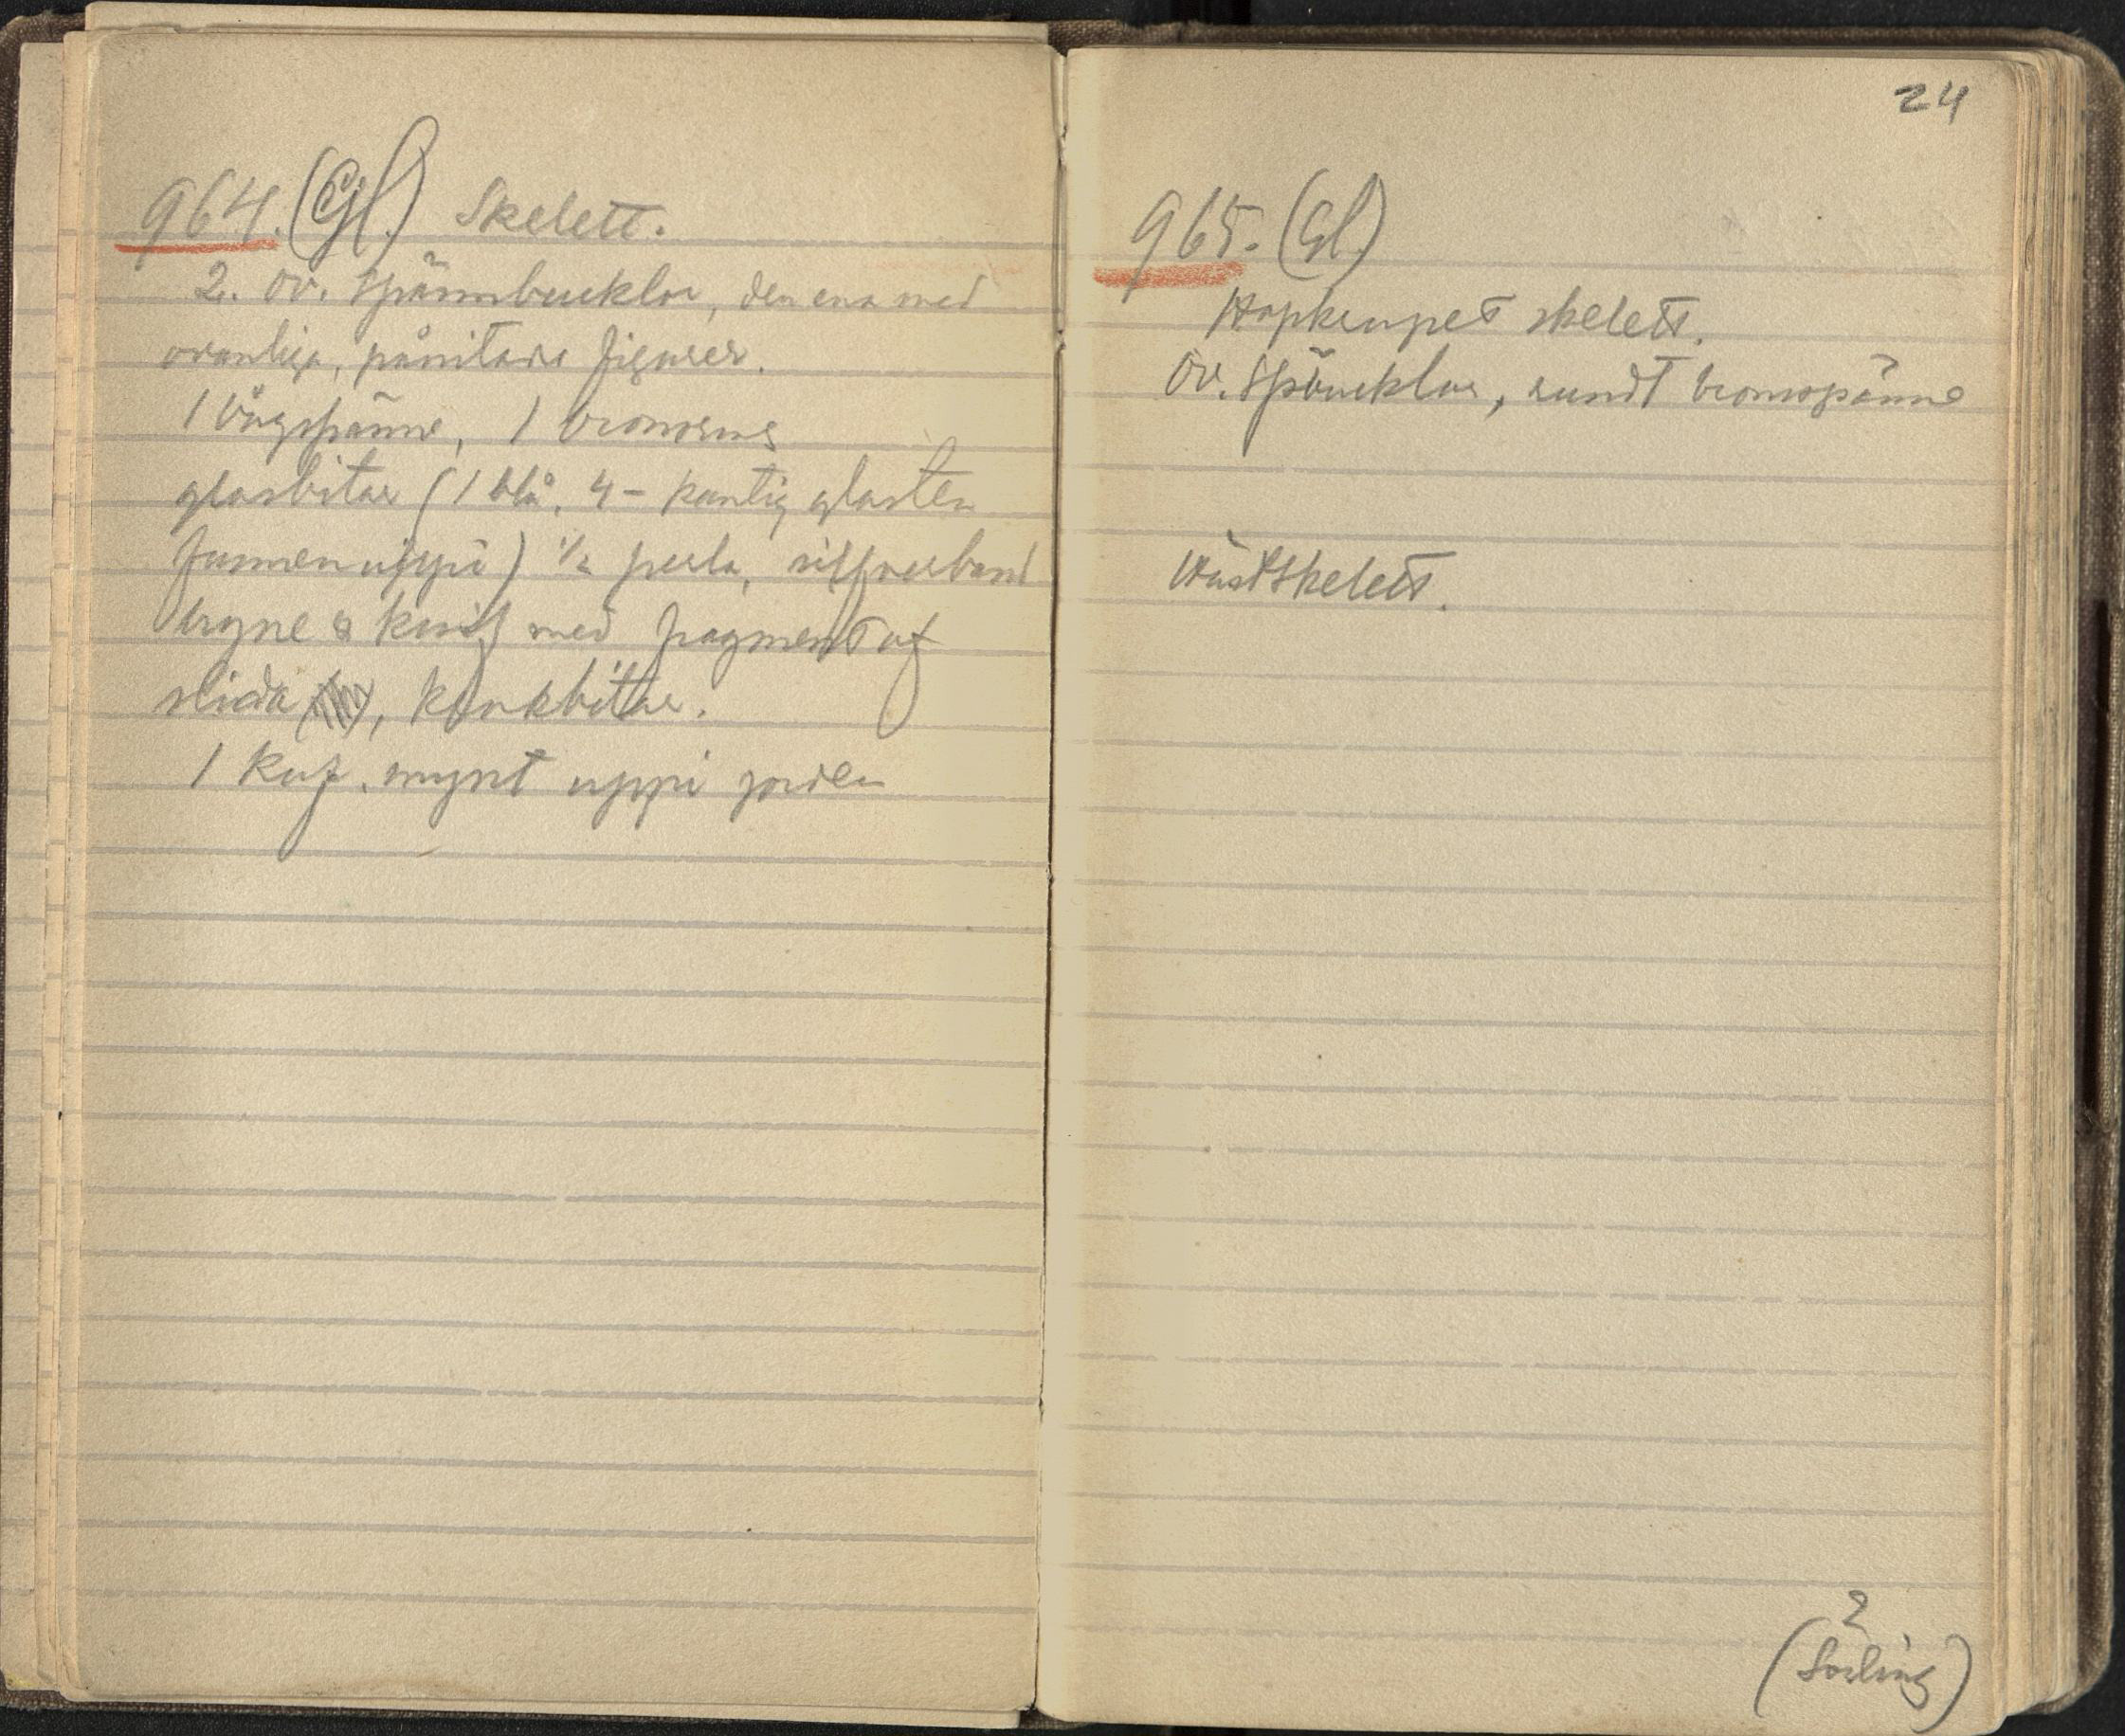 964. (Gl.) Skelett.
2. ov. spännbucklor, den ena med
ovanliga, påritade figurer.
1 bågspänne, 1 bronsring
glasbitar (1 blå, 4-kantig glasten
funnen uppi) 1/2 perla, silfverband
bryne & knif med fragment af
slida, kokbitar.
1 Kuf. mynt uppi jorden
24
965. (Gl.)
Hopkrupet skelett.
Ov. spbucklor, rundt bronsspänne
Hästskelett.
2
(Sörling)